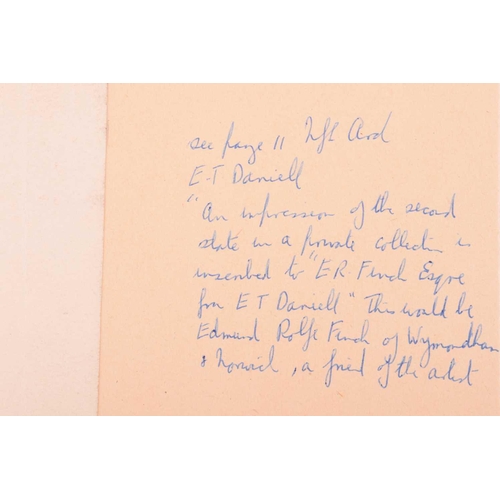 see page 11
E-T Daniell
"An impression of the second
state in a private collection is
inscribed to "E R. Finch Esqre
from E T Daniell" This would be
Edmund Rolfe Finch of Wymondham
& Norwich, a friend of the artist